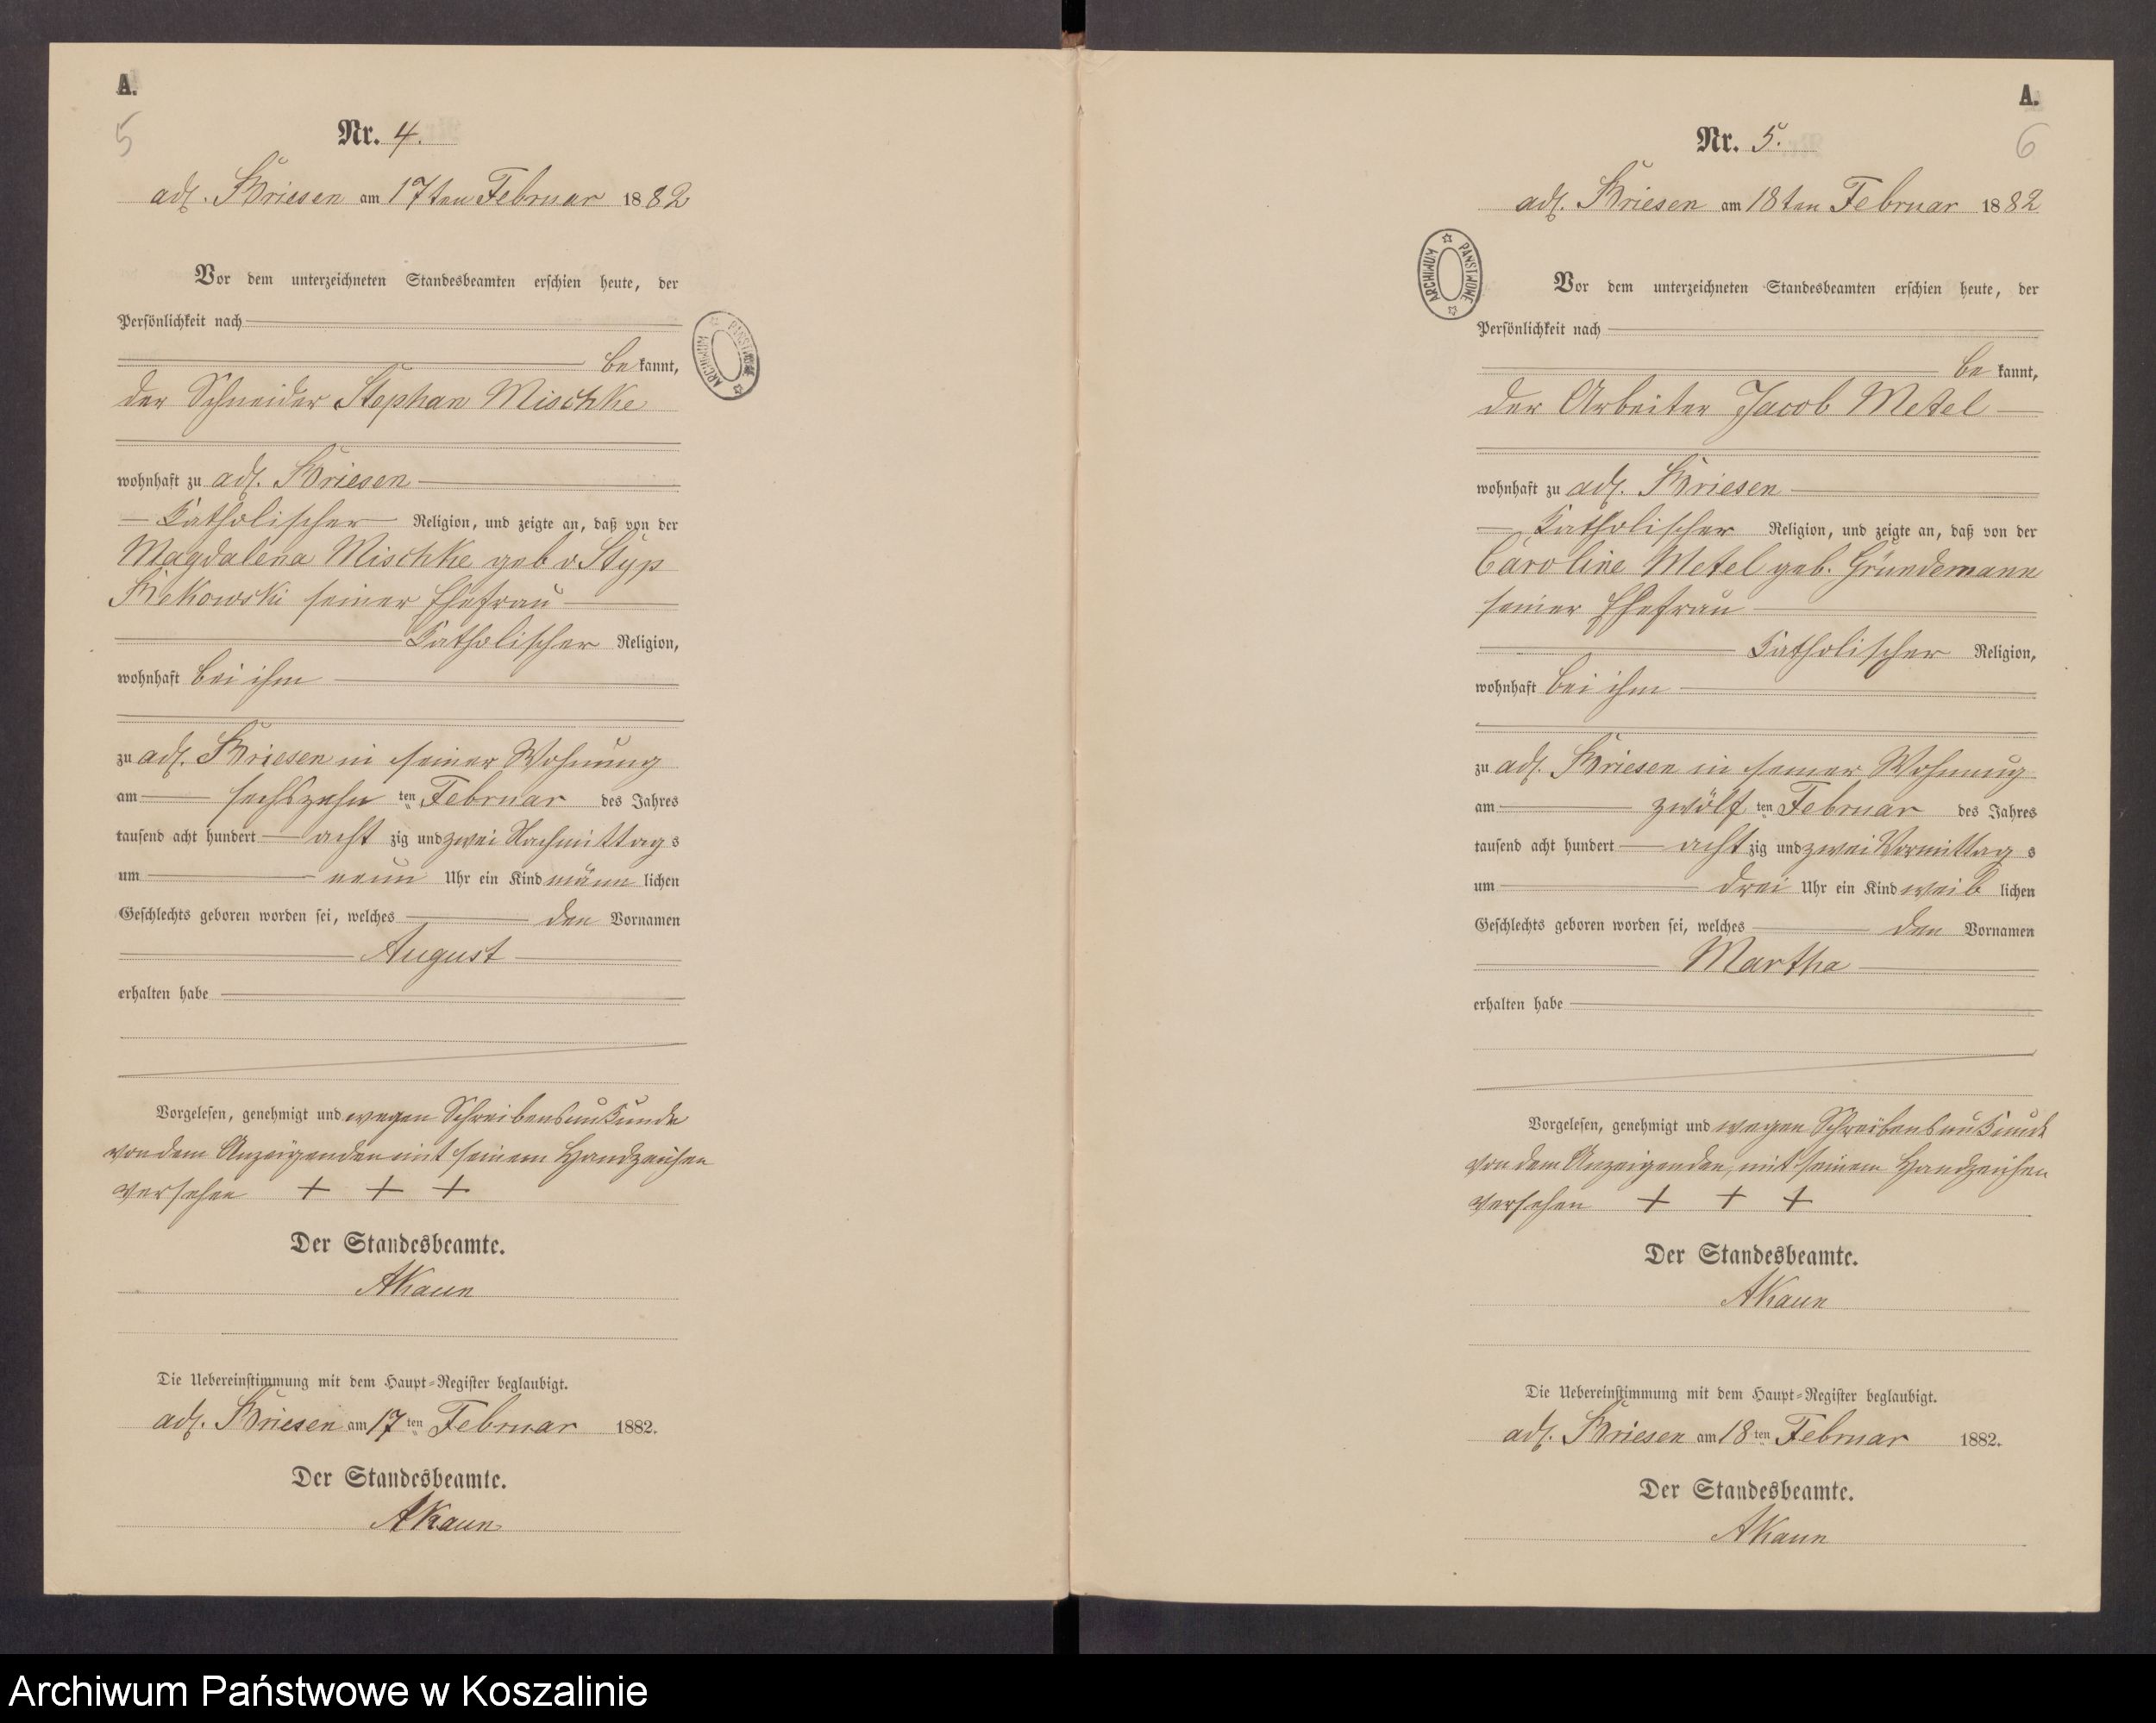 A.
5
Nr. 4.
adl. Briesen am 17ten Februar 1882
Vor dem unterzeichneten Standesbeamten erschien heute, der
Persönlichkeit nach
be kannt,
der Schneider Stephan Mischke
wohnhaft zu adl. Briesen
Katholischer Religion, und zeigte an, daß von der
Magdalena Mischke geb v. Styp
Rekowski seiner Ehefrau
Katholischer Religion,
wohnhaft bei ihm
zu adl. Briesen in seiner Wohnung
am sechszehn ten Februar des Jahres
tausend acht hundert acht zig und zwei Nachmittag s
um neun Uhr ein Kind männ lichen
Geschlechts geboren worden sei, welches den Vornamen
August
erhalten habe
Vorgelesen, genehmigt und wegen Schreibensunkunde
von dem Anzeigenden mit seinem Handzeichen
versehen + + +
Der Standesbeamte.
AKaun
Die Uebereinstimmung mit dem Haupt-Register beglaubigt.
adl. Briesen am 17 ten Februar 1882.
Der Standesbeamte.
AKaun
ARCHIWUM PAŃSTWOWE
A.
6
Nr. 5.
adl. Briesen am 18ten Februar 1882
ARCHIWUM PAŃSTWOWE
Vor dem unterzeichneten Standesbeamten erschien heute, der
Persönlichkeit nach
be kannt,
der Arbeiter Jacob Metel
wohnhaft zu adl. Briesen
Katholischer Religion, und zeigte an, daß von der
Caroline Metel geb. Gründemann
seiner Ehefrau
Katholischer Religion,
wohnhaft bei ihm
zu adl. Briesen in seiner Wohnung
am zwölf ten Februar des Jahres
tausend acht hundert acht zig und zwei Vormittag s
um drei Uhr ein Kind weib lichen
Geschlechts geboren worden sei, welches den Vornamen
Martha
erhalten habe
Vorgelesen, genehmigt und wegen Schreibensunkunde
von dem Anzeigenden, mit seinem Handzeichen
versehen + + +
Der Standesbeamte.
AKaun
Die Uebereinstimmung mit dem Haupt-Register beglaubigt.
adl. Briesen am 18 ten Februar 1882.
Der Standesbeamte.
AKaun
Archiwum Państwowe w Koszalinie